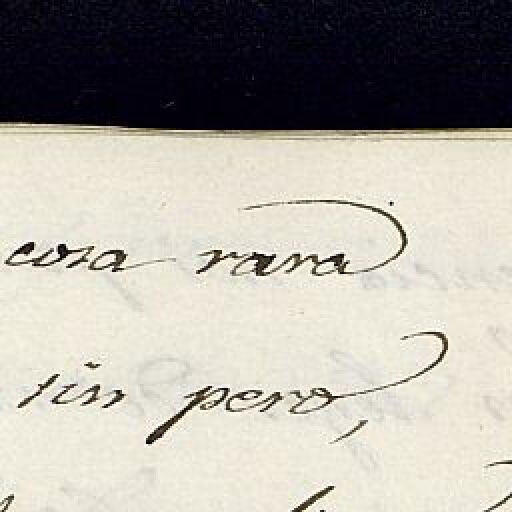 cosa rara
sin pero,